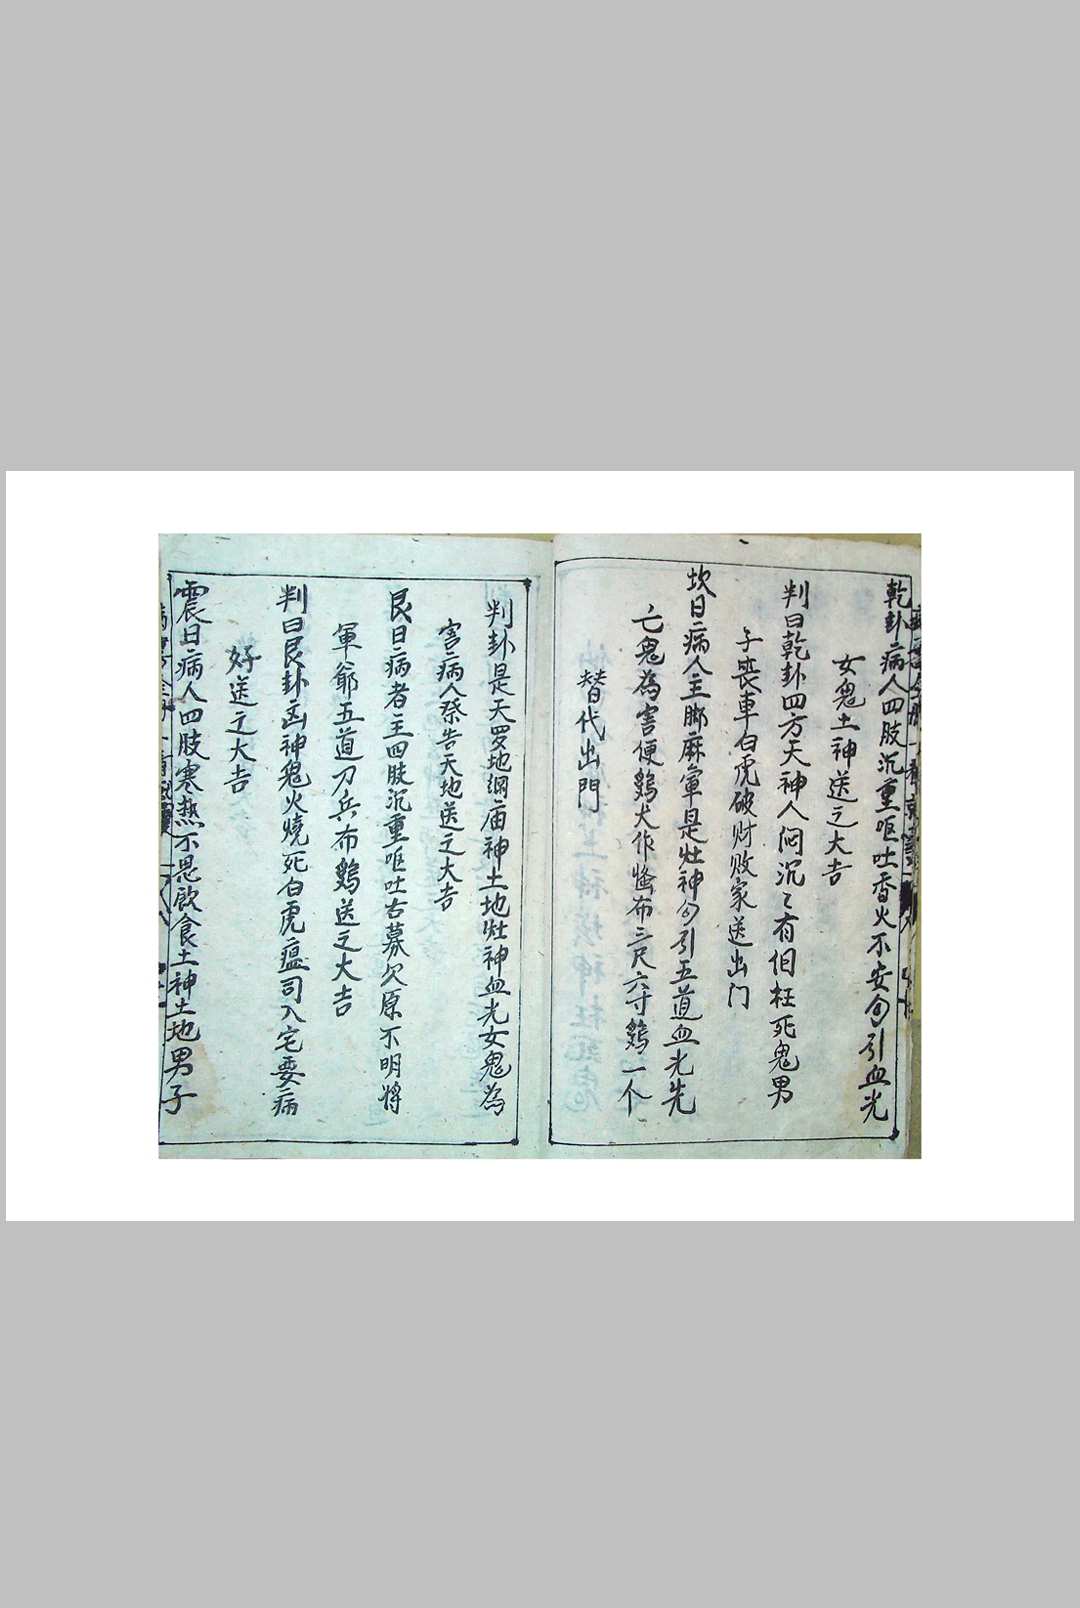 乾卦病人四肢沉重呕吐香火不安勾引血光
女鬼土神送之大吉
判曰乾卦四方天神人闷沉〻有伹枉死鬼男
子丧車白虎破财败家送出门
坎日病人主脚麻軍是灶神勾引五道血光先
亡鬼為害便鷄犬作恠布三尺六寸鷄一个
替代出門
判卦是天罗地網庙神土地灶神血光女鬼為
害病人祭告天地送之大吉
艮日病者主四肢沉重呕吐古墓欠原不明將
軍爺五道刀兵布鷄送之大吉
判曰艮卦凶神鬼火燒死白虎瘟司入宅要病
好送之大吉
震日病人四肢寒熱不思飲食土神土地男子